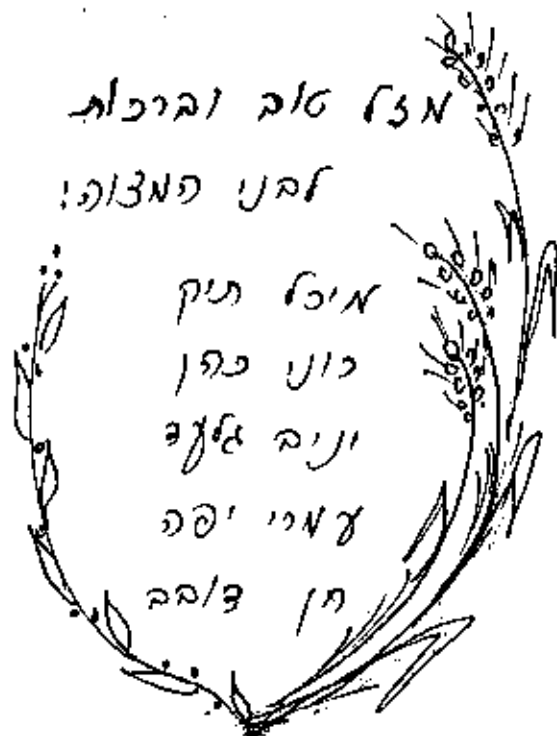 מזל טוב וברכות
לבני המצוה!
מיכל תיק
רוני כהן
יניב גלעד
עמרי יפה
חן דובב